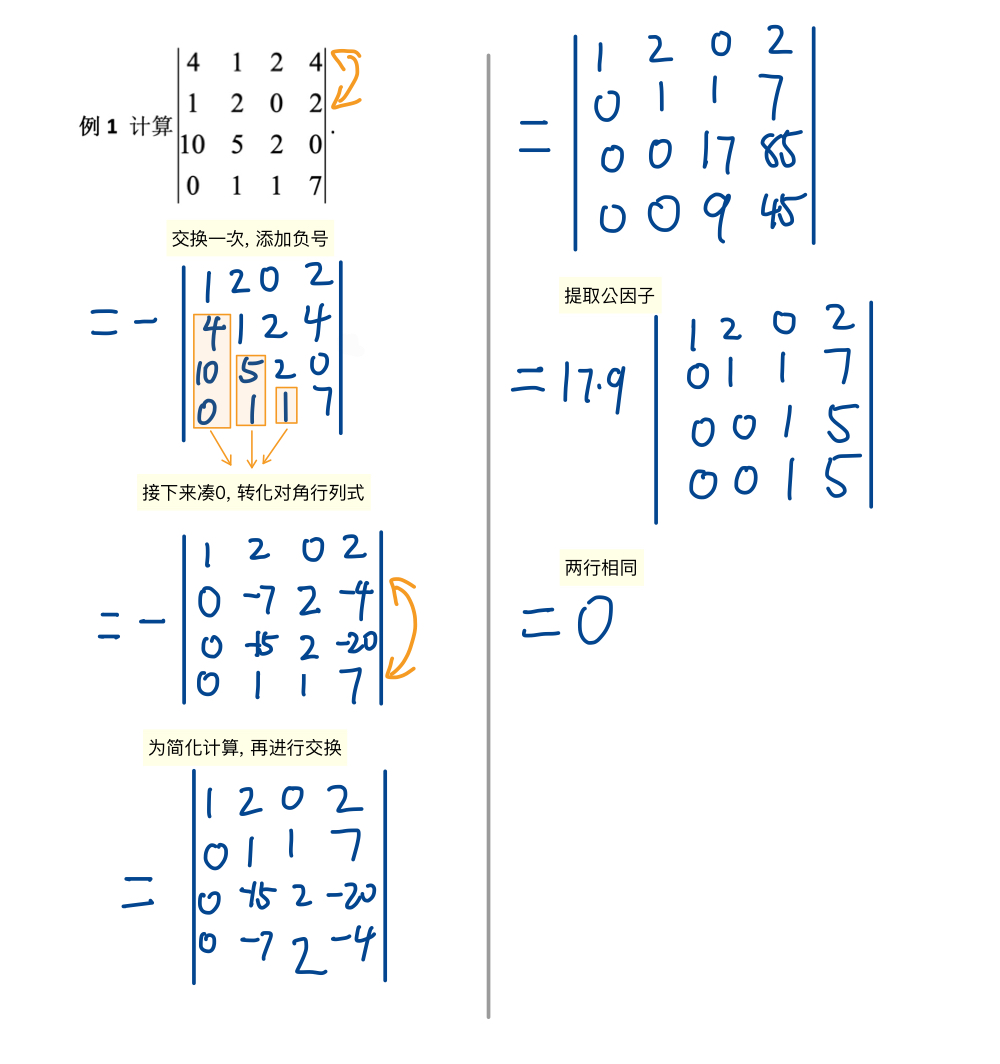 4 1 2 4
1 2 0 2
例 1 计算
.
10 5 2 0
0 1 1 7
交换一次, 添加负号
1 2 0 2
= - 4 1 2 4
10 5 2 0
0 1 1 7
接下来凑0, 转化对角行列式
1 2 0 2
0 -7 2 -4
= - 0 -15 2 -20
0 1 1 7
为简化计算, 再进行交换
1 2 0 2
0 1 1 7
= 0 -15 2 -20
0 -7 2 -4
1 2 0 2
0 1 1 7
= 0 0 17 85
0 0 9 45
提取公因子
1 2 0 2
= 17·9 0 1 1 7
0 0 1 5
0 0 1 5
两行相同
= 0